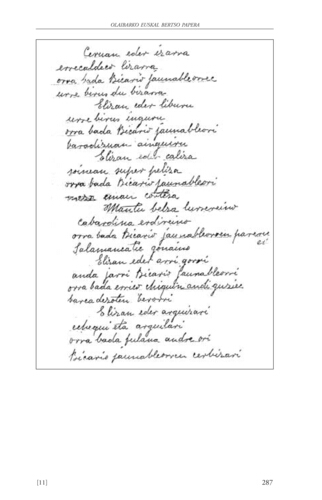 OLAIBARKO EUSKAL BERTSO PAPERA
Ceruan eder izarra
errecaldeco lizarra
orra bada Bicario jaunableorrec
urre birus du bizarra
Elizan eder liburu
urre birus inguru
orra bada Bicario jaunableori
baradizuan ainguiru
Elizan eder caliza
zeinuan super peliza
orra bada Bicario jaunableori
meza eman
Mantu belza lurrereino
orra bada Bicario jaunableorren pareric
ez
Salamancatic gonaino
Elizan eder arri gorri
anda jarri Bicario jaunableorri
orra bada errico chiquin andi guziec
barcadezoten berorri
Elizan eder arguizari
eta arguilari
orra bada fulana andre ori
Bicario jaunableorren cerbizari
[11]
287